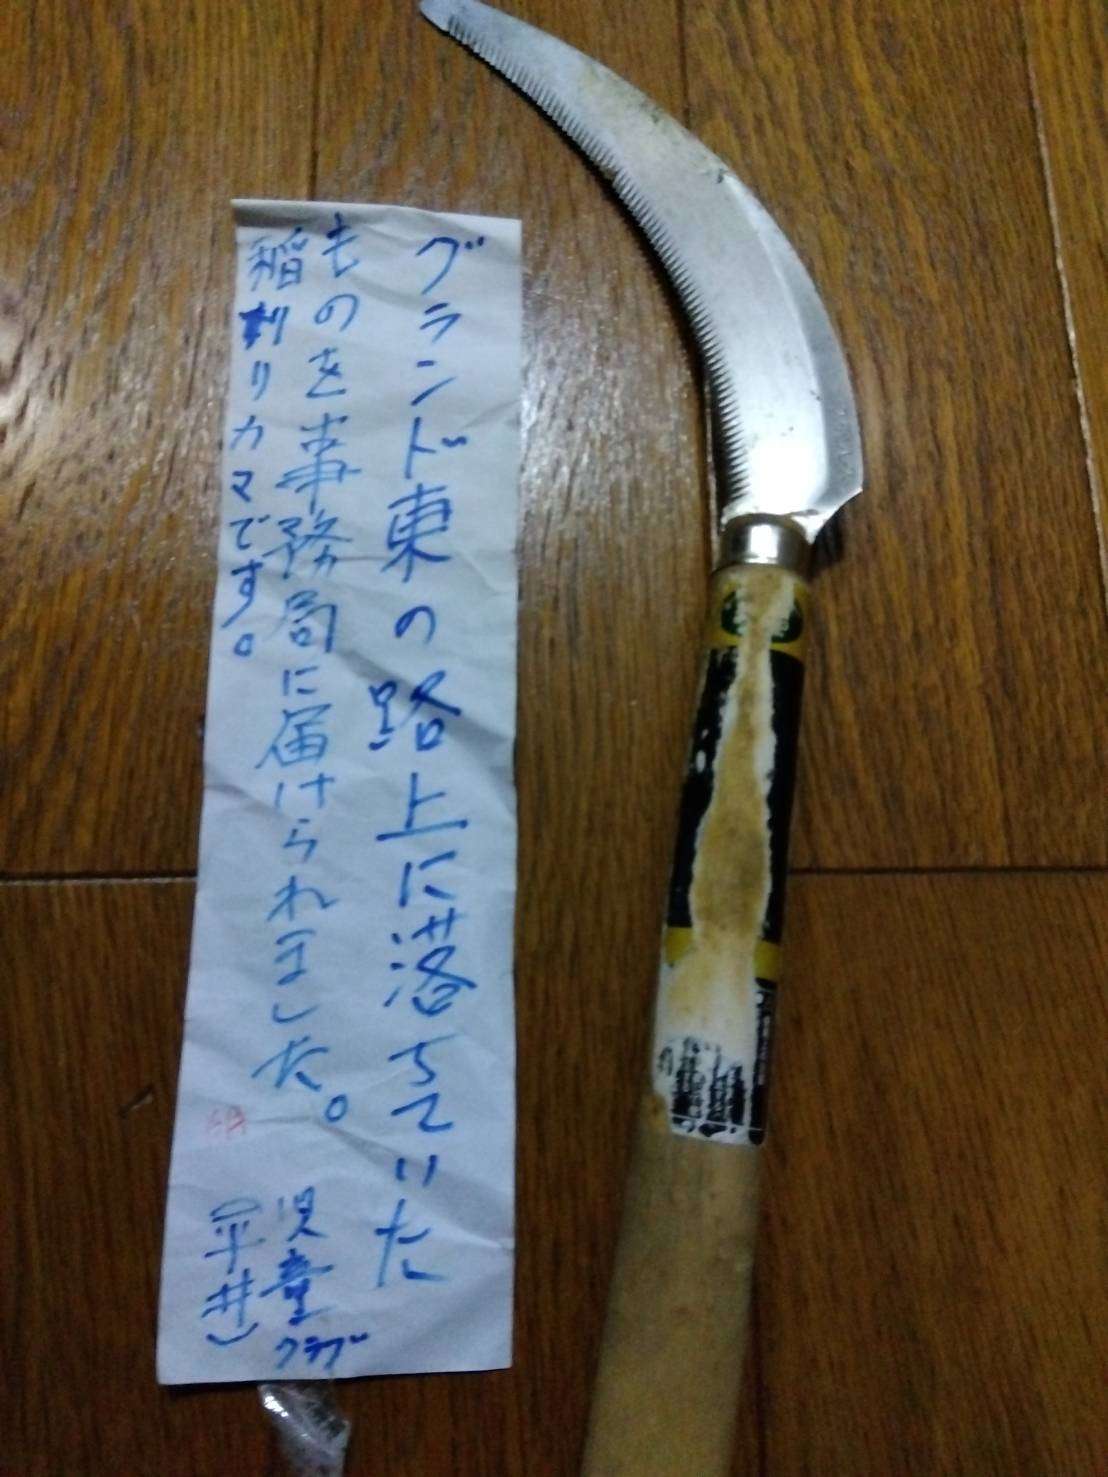 グランド東の路上に落ちていた
ものを事務局に届けられました。
稲刈りカマです。
児童クラブ
(平井)